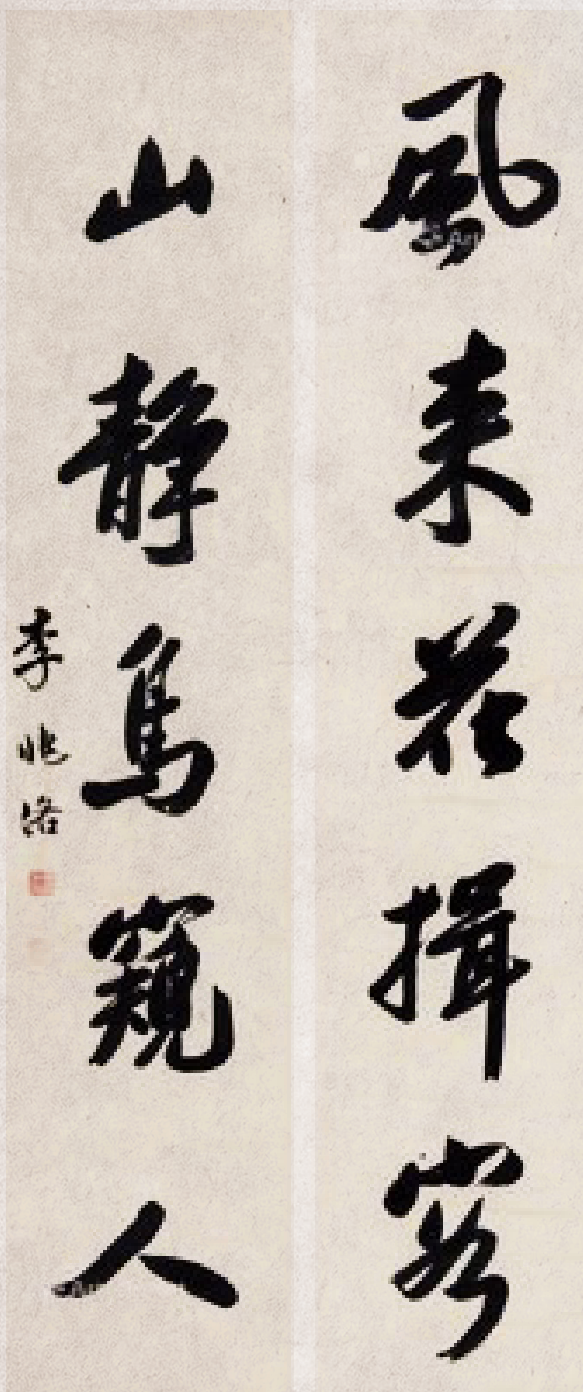 風来花揖客
山静鳥窺人
李兆洛